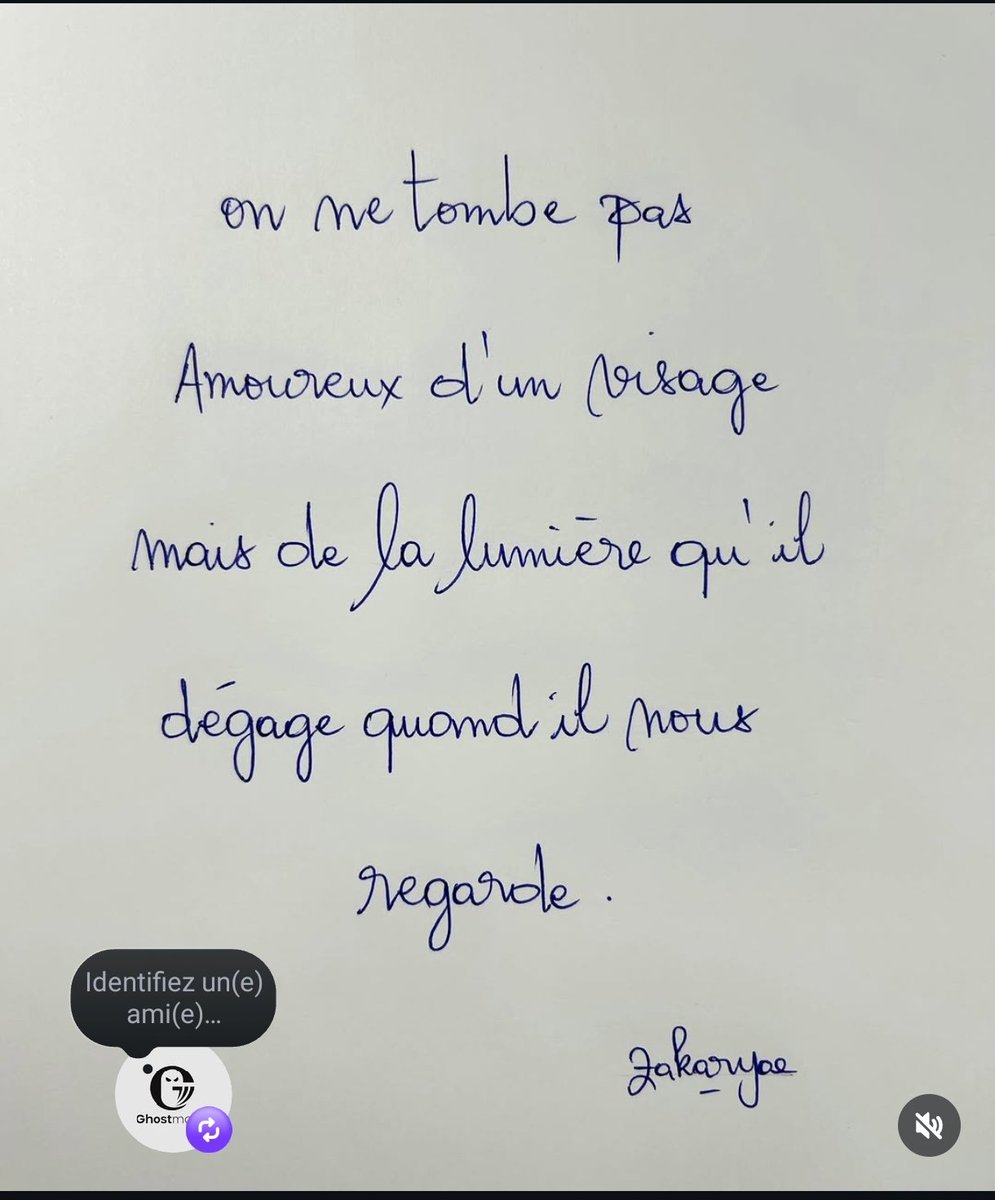 on ne tombe pas
Amoureux d'un visage
mais de la lumière qu'il
dégage quand il nous
regarde .
zakaryae
Identifiez un(e)
ami(e)...